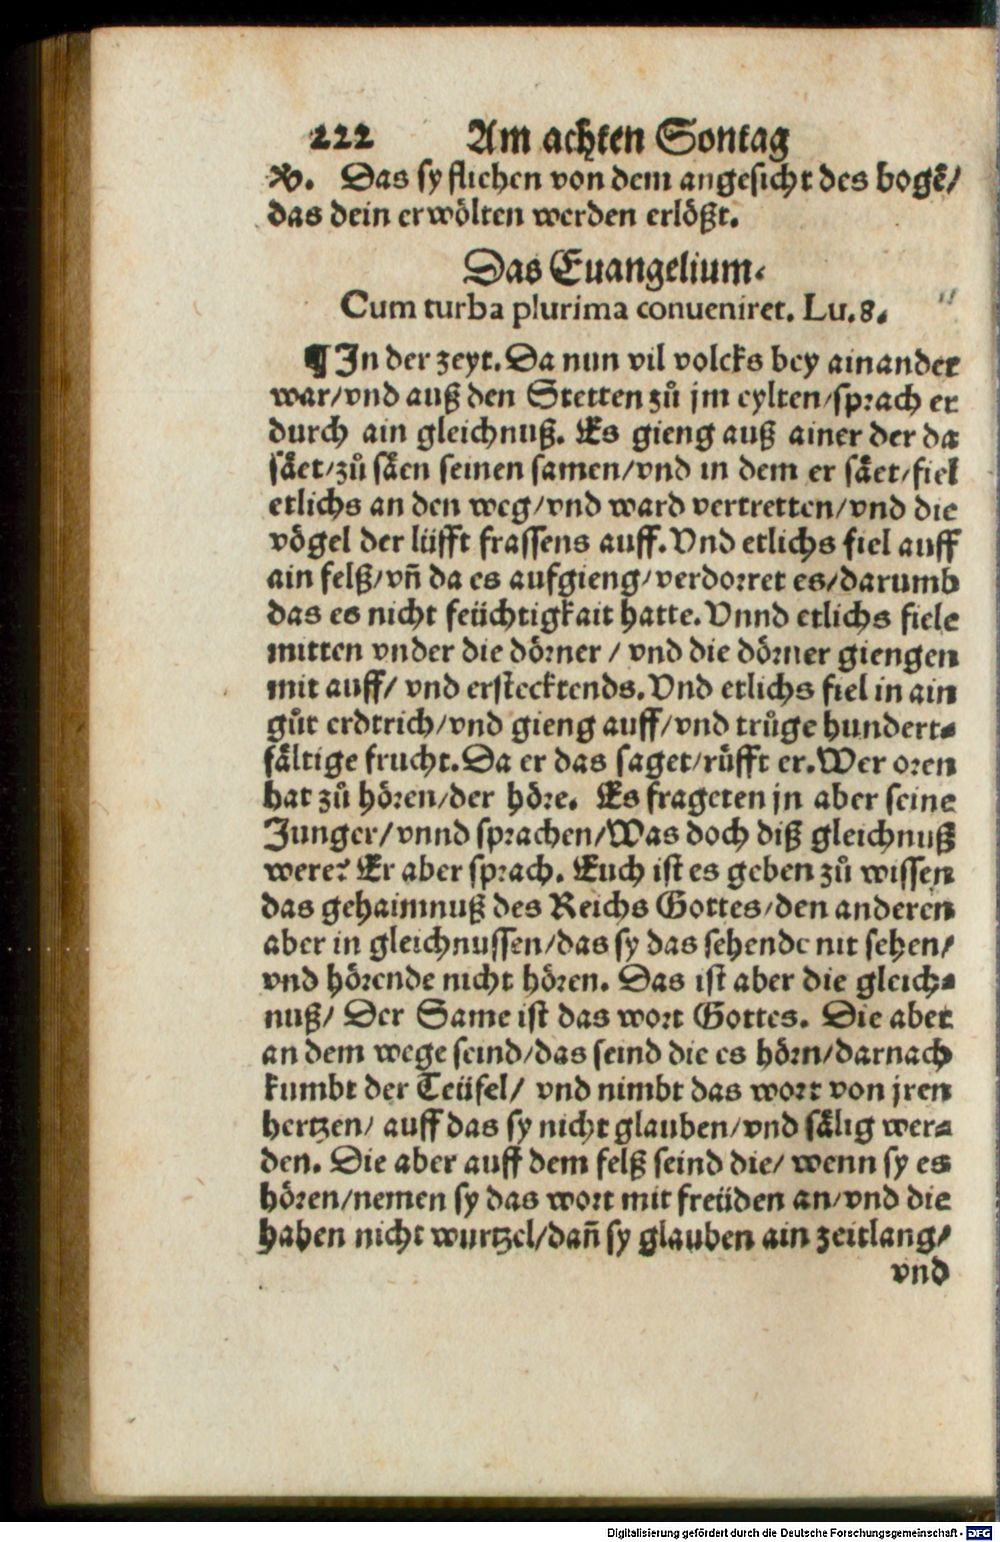 222 Am achten Sontag
℣. Das sy fliehen von dem angesicht des bogẽ/
das dein erwölten werden erlößt.
Das Euangelium.
Cum turba plurima conueniret. Lu. 8.
¶ In der zeyt. Da nun vil volcks bey ainander
war/vnd auß den Stetten zů jm eylten/sprach er
durch ain gleichnuß. Es gieng auß ainer der da
säet/zů säen seinen samen/vnd in dem er säet/fiel
etlichs an den weg/vnd ward vertretten/vnd die
vögel der lüfft frassens auff. Vnd etlichs fiel auff
ain felß/vñ da es aufgieng/verdorret es/darumb
das es nicht feüchtigkait hatte. Vnnd etlichs fiele
mitten vnder die dörner / vnd die dörner giengen
mit auff/ vnd erstecktends. Vnd etlichs fiel in ain
gůt erdtrich/vnd gieng auff/vnd trůge hundert⸗
fältige frucht. Da er das saget/růfft er. Wer oren
hat zů hören/der höre. Es frageten jn aber seine
Junger/vnnd sprachen/Was doch diß gleichnuß
were? Er aber sprach. Euch ist es geben zů wissen
das gehaimnuß des Reichs Gottes/den anderen
aber in gleichnussen/das sy das sehende nit sehen/
vnd hörende nicht hören. Das ist aber die gleich⸗
nuß/ Der Same ist das wort Gottes. Die aber
an dem wege seind/das seind die es hörn/darnach
kumbt der Teüfel/ vnd nimbt das wort von jren
hertzen/ auff das sy nicht glauben/vnd sälig wer⸗
den. Die aber auff dem felß seind die/ wenn sy es
hören/nemen sy das wort mit freüden an/vnd die
haben nicht wurtzel/dañ sy glauben ain zeitlang/
vnd
Digitalisierung gefördert durch die Deutsche Forschungsgemeinschaft - DFG